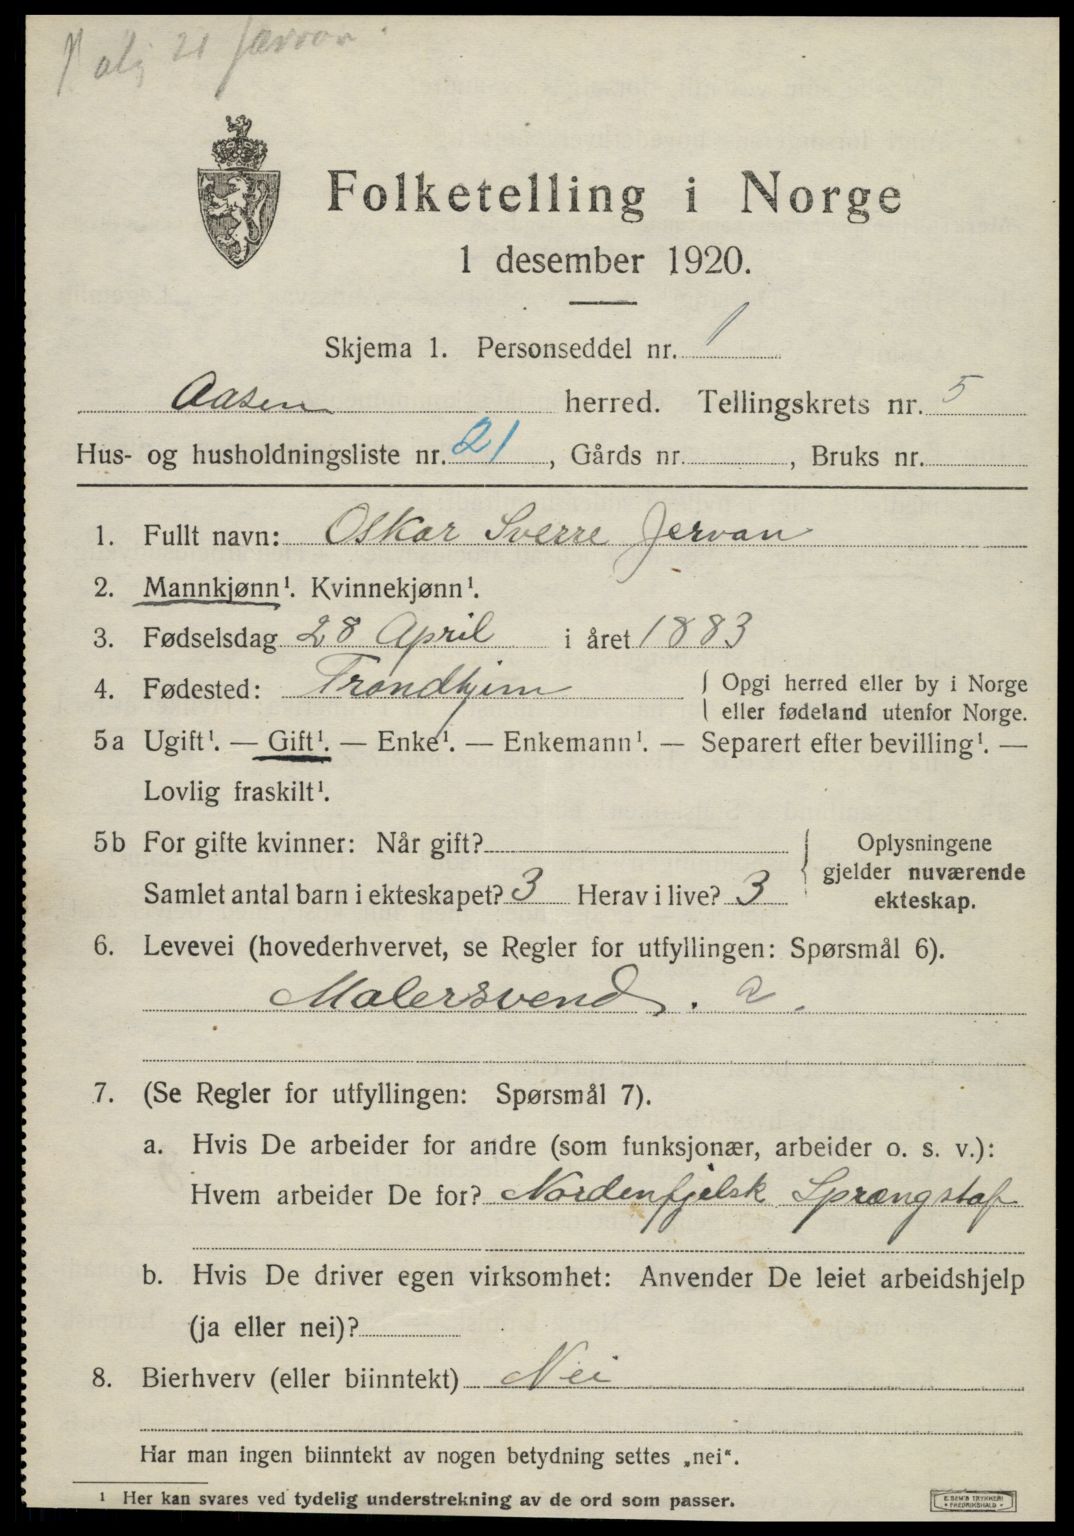 21
Folketelling i Norge
1 desember 1920.
Skjema 1. Personseddel nr. 1
Aasen herred. Tellingskrets nr. 5
Hus- og husholdningsliste nr. 21, Gårds nr. , Bruks nr.
1. Fullt navn: Oskar Sverre Jervan
2. Mannkjønn¹. Kvinnekjønn¹.
3. Fødselsdag 28 April i året 1883
4. Fødested: Trondhjim { Opgi herred eller by i Norge
eller fødeland utenfor Norge.
5a Ugift¹. — Gift¹. — Enke¹. — Enkemann¹. — Separert efter bevilling¹. —
Lovlig fraskilt¹.
5b For gifte kvinner: Når gift? { Oplysningene
gjelder nuværende
Samlet antal barn i ekteskapet? 3 Herav i live? 3 ekteskap.
6. Levevei (hovederhvervet, se Regler for utfyllingen: Spørsmål 6).
Malersvend. a.
7. (Se Regler for utfyllingen: Spørsmål 7).
a. Hvis De arbeider for andre (som funksjonær, arbeider o. s. v.):
Hvem arbeider De for? Nordenfjelsk Sprængstof
b. Hvis De driver egen virksomhet: Anvender De leiet arbeidshjelp
(ja eller nei)?
8. Bierhverv (eller biinntekt) Nei
Har man ingen biinntekt av nogen betydning settes „nei“.
¹ Her kan svares ved tydelig understrekning av de ord som passer.
E. SEM'S TRYKKERI
FREDRIKSHALD